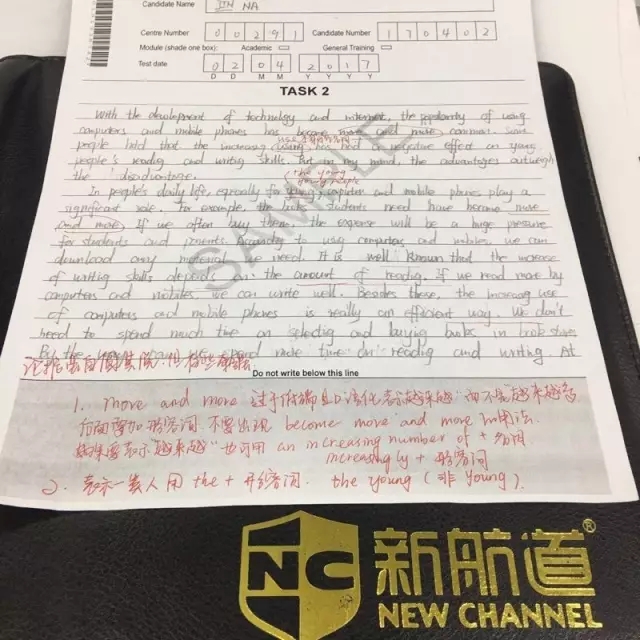 Candidate Name JIN NA
Centre Number 0 0 2 9 1 Candidate Number 1 7 0 4 0 2
Module (shade one box): Academic General Training
Test date 0 2 0 4 2 0 1 7
D D M M Y Y Y Y
TASK 2
With the development of technology and internet, the popularity of using
computers and mobile phones has become more and more common. Some
people hold that the increasing using has negative effect on young
people's reading and writing skills. But in my mind, the advantages outweigh
the disadvantage.
the young
In people's daily life, especially for young computer and mobile phones play a
significant role. For example, the books students need have become more
and more. If we often buy them the expense will be a huge pressure
for students and parents. According to using computers and mobiles, we can
download any material we need. It is well known that the increase
of writing skills depends on the amount of reading. If we read more by
computers and mobiles we can write well. Besides these, the increasing use
of computers and mobile phones is really an efficient way. We don't
need to spend much time on selecting and buying books in book stores
By the spend more time on reading and writing. At
Do not write below this line
1. move and more 过于 口语化 表示越来越
后面要加形容词, 不要出现 become more and more 的用法
越来越 也可用 an increasing number of + 名词
increasingly + 形容词
2. 表示一类人用 the + 形容词. the young (非 young).
SAMPLE
NC 新航道®
NEW CHANNEL